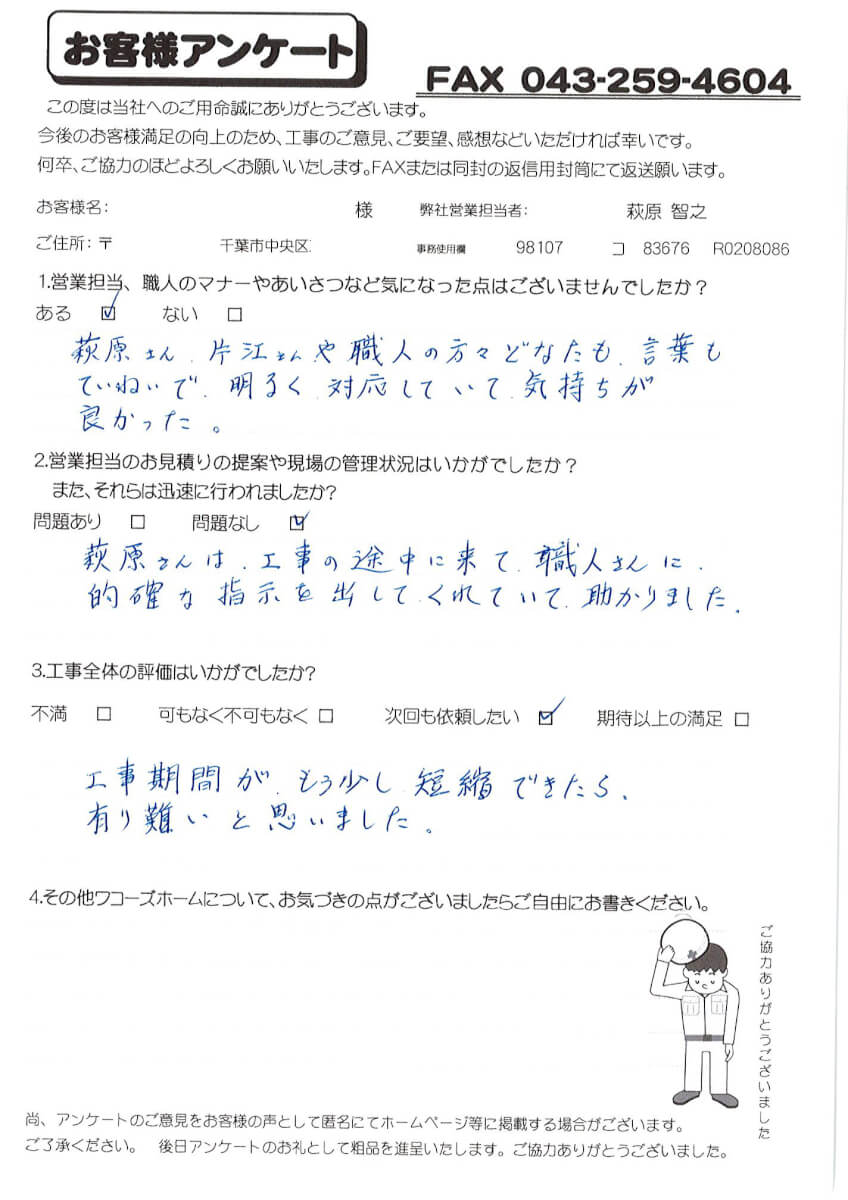 お客様アンケート
FAX 043-259-4604
この度は当社へのご用命誠にありがとうございます。
今後のお客様満足の向上のため、工事のご意見、ご要望、感想などいただければ幸いです。
何卒、ご協力のほどよろしくお願いいたします。FAXまたは同封の返信用封筒にて返送願います。
お客様名： 様 弊社営業担当者： 萩原 智之
ご住所：〒 千葉市中央区 事務使用欄 98107 コ 83676 R0208086
1.営業担当、職人のマナーやあいさつなど気になった点はございませんでしたか？
ある ☑ ない □
萩原さん、片江さんや職人の方々どなたも、言葉も
ていねいで、明るく対応していて、気持ちが
良かった。
2.営業担当のお見積りの提案や現場の管理状況はいかがでしたか？
また、それらは迅速に行われましたか?
問題あり □ 問題なし ☑
萩原さんは、工事の途中に来て、職人さんに、
的確な指示を出してくれていて、助かりました。
3.工事全体の評価はいかがでしたか?
不満 □ 可もなく不可もなく □ 次回も依頼したい ☑ 期待以上の満足 □
工事期間が、もう少し短縮できたら、
有り難いと思いました。
4.その他ワコーズホームについて、お気づきの点がございましたらご自由にお書きください。
ご協力ありがとうございました
尚、アンケートのご意見をお客様の声として匿名にてホームページ等に掲載する場合がございます。
ご了承ください。 後日アンケートのお礼として粗品を進呈いたします。ご協力ありがとうございました。